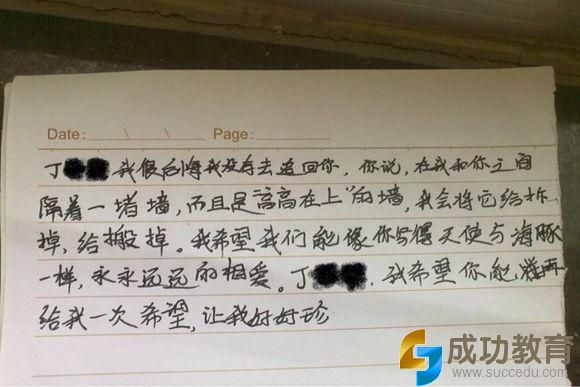 Date: \ \ Page:
丁 我很后悔我没有去追回你，你说，在我和你之间
隔着一堵墙，而且是“高高在上”的墙，我会将它给拆
掉，给搬掉。我希望我们能像你写得天使与海豚
一样，永永远远的相爱。丁 ，我希望你能 再
给我一次希望，让我好好珍
成功教育
www.succedu.com